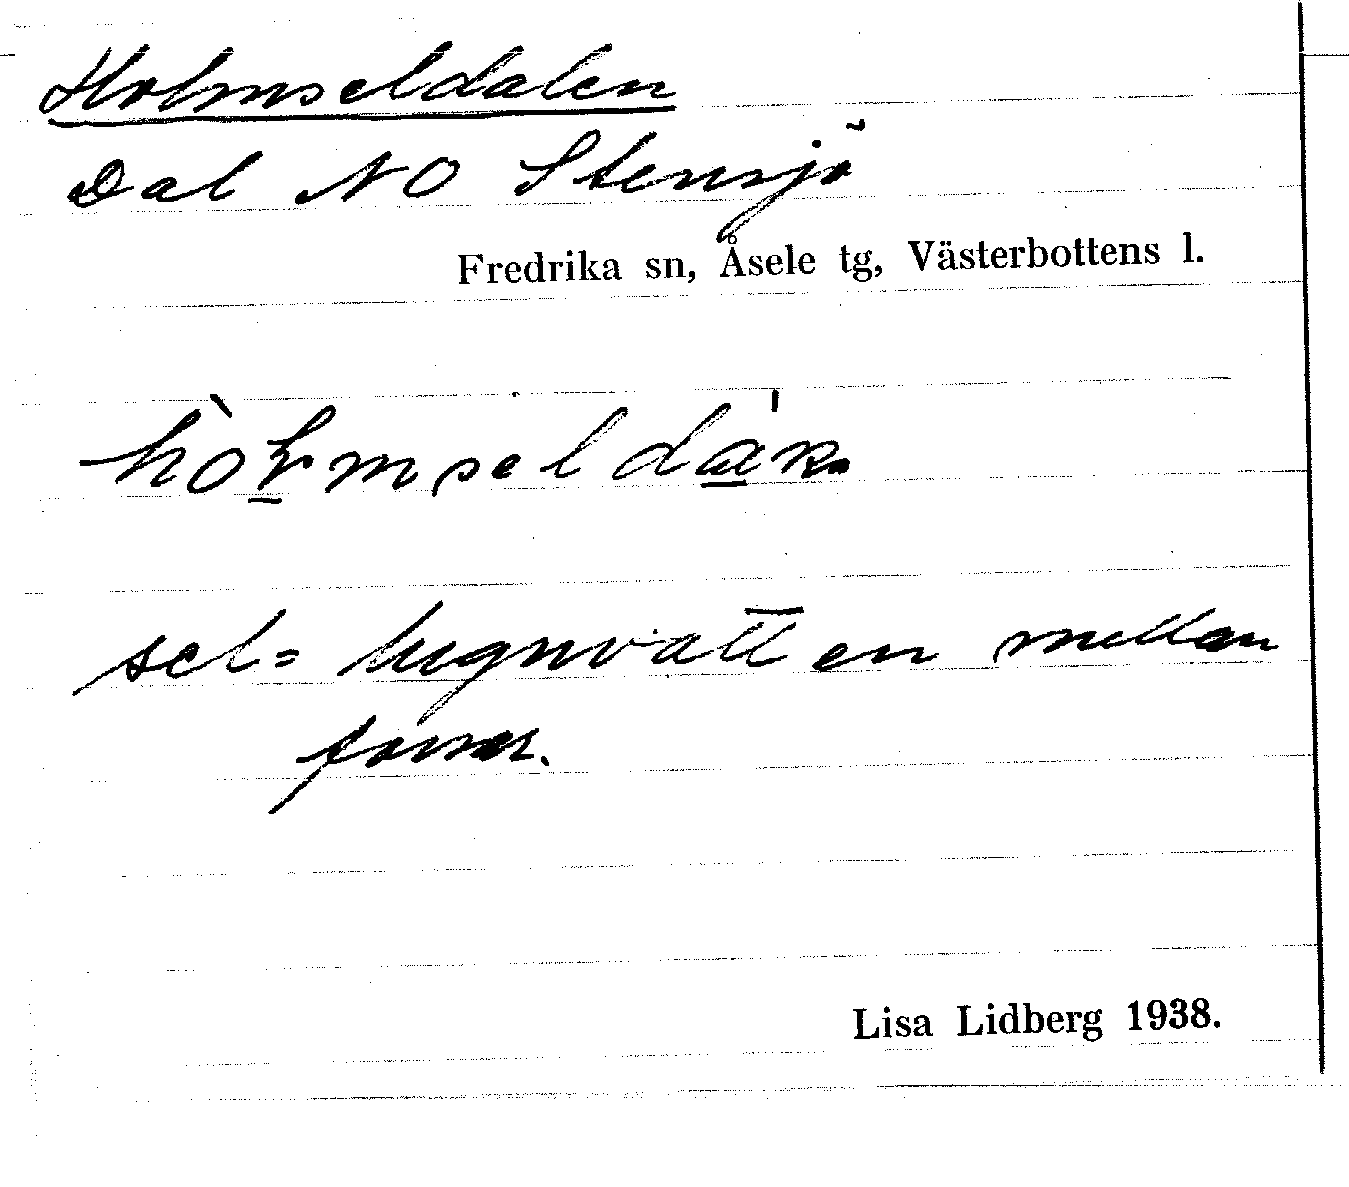 Holmseldalen
Dal NO Stensjö
Fredrika sn, Åsele tg, Västerbottens l.
sel = lugnvatten mellan
forsar.
Lisa Lidberg 1938.